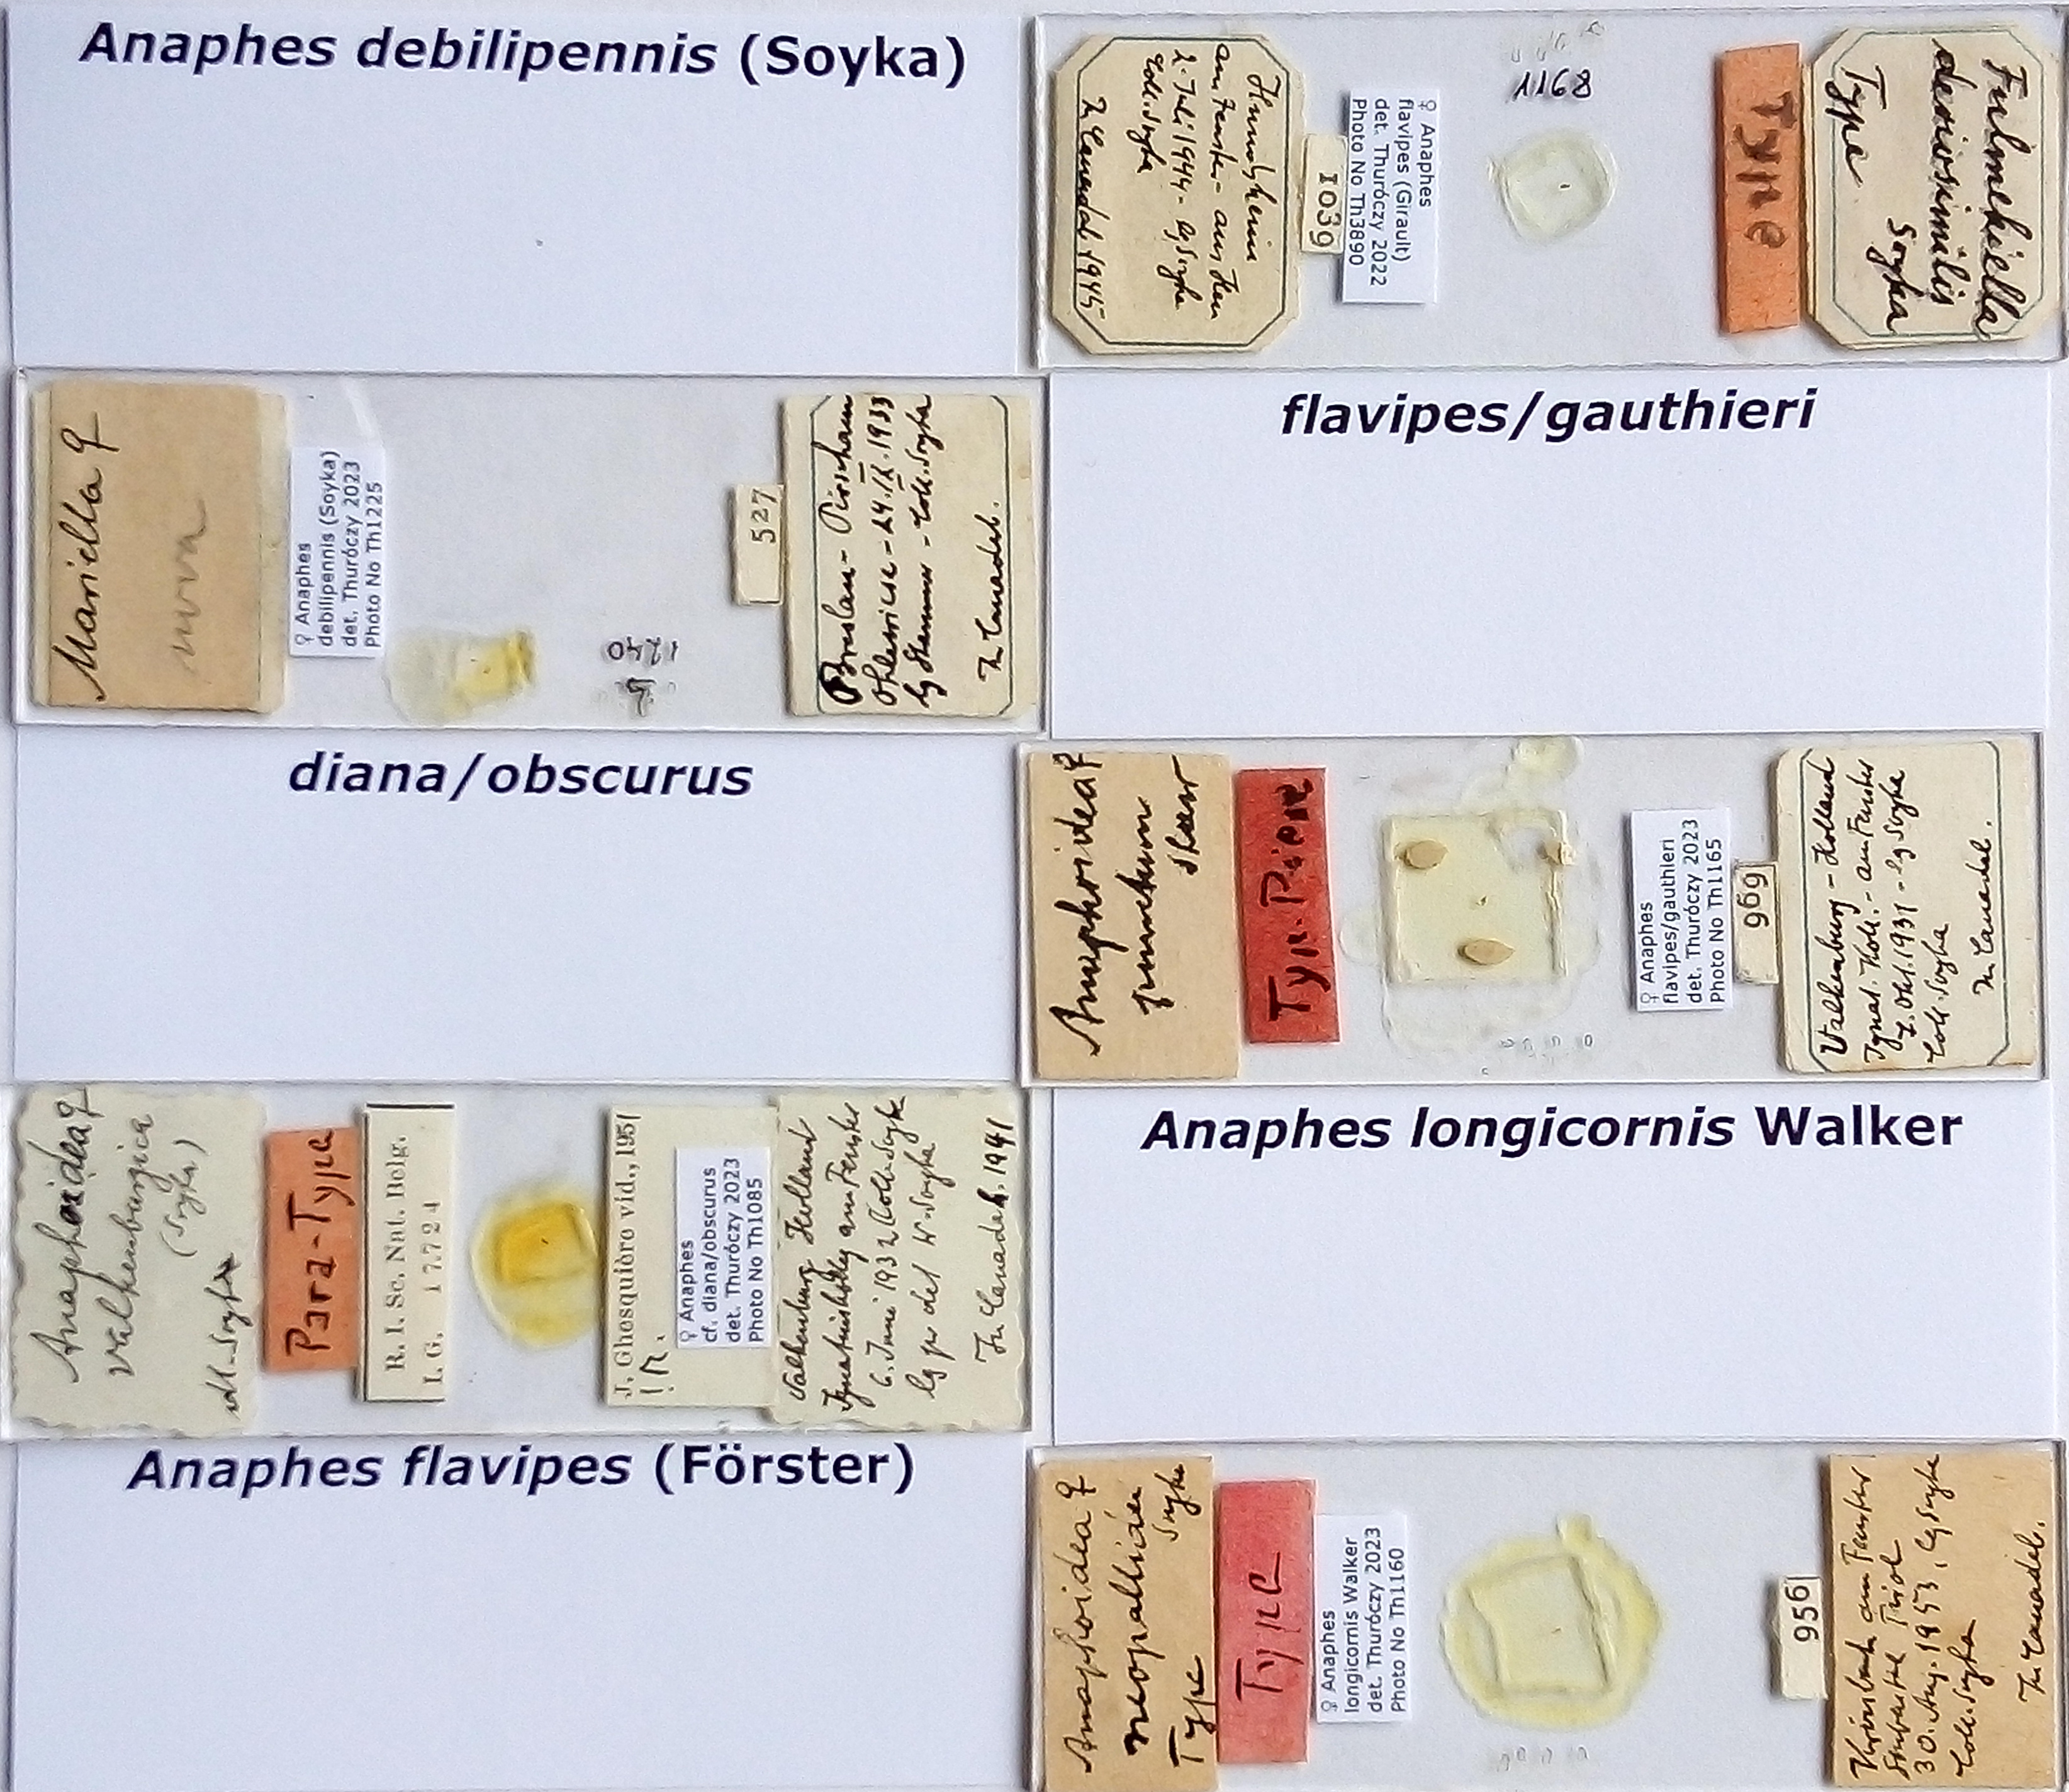 Anaphes debilipennis (Soyka)
Hundsheim
am Fenster - aus Heu
2. Juli 1944 - lg Soyka
Coll. Soyka
In Canadab. 1945
1039
♀ Anaphes
flavipes (Girault)
det. Thuróczy 2022
Photo No Th3890
1168
Type
Fulmekiella
Type
Soyka
Mariella ♀
♀ Anaphes
debilipennis (Soyka)
det. Thuróczy 2023
Photo No Th1225
1240
527
Breslau - Pirscham
Ohlewiese - 24.IX.1933
Coll. Soyka
In Canadab.
flavipes/gauthieri
diana/obscurus
Anaphoidea ♀
♀ Anaphes
flavipes/gauthieri
det. Thuróczy 2023
Photo No Th1165
969
Valkenburg - Holland
Ignat. Koll. - am Fenster
7. Okt. 1931 - lg Soyka
Coll. Soyka
In Canadab.
Anaphoidea ♀
valkenburgica
(Soyka)
Soyka
Para-Type
R. I. Sc. Nat. Belg.
I. G. 17.724
J. Ghesquière vid., 1951
♀ Anaphes
cf. diana/obscurus
det. Thuróczy 2023
Photo No Th1085
Valkenburg Holland
am Fenster
6. Juni 1932 Coll. Soyka
lg pr det W. Soyka
In Canadab. 1941
Anaphes longicornis Walker
Anaphes flavipes (Förster)
Anaphoidea ♀
neopallida
Soyka
Type
Type
♀ Anaphes
longicornis Walker
det. Thuróczy 2023
Photo No Th1160
956
am Fenster
Tirol
30. Aug. 1953, lg Soyka
Coll. Soyka
In Canadab.